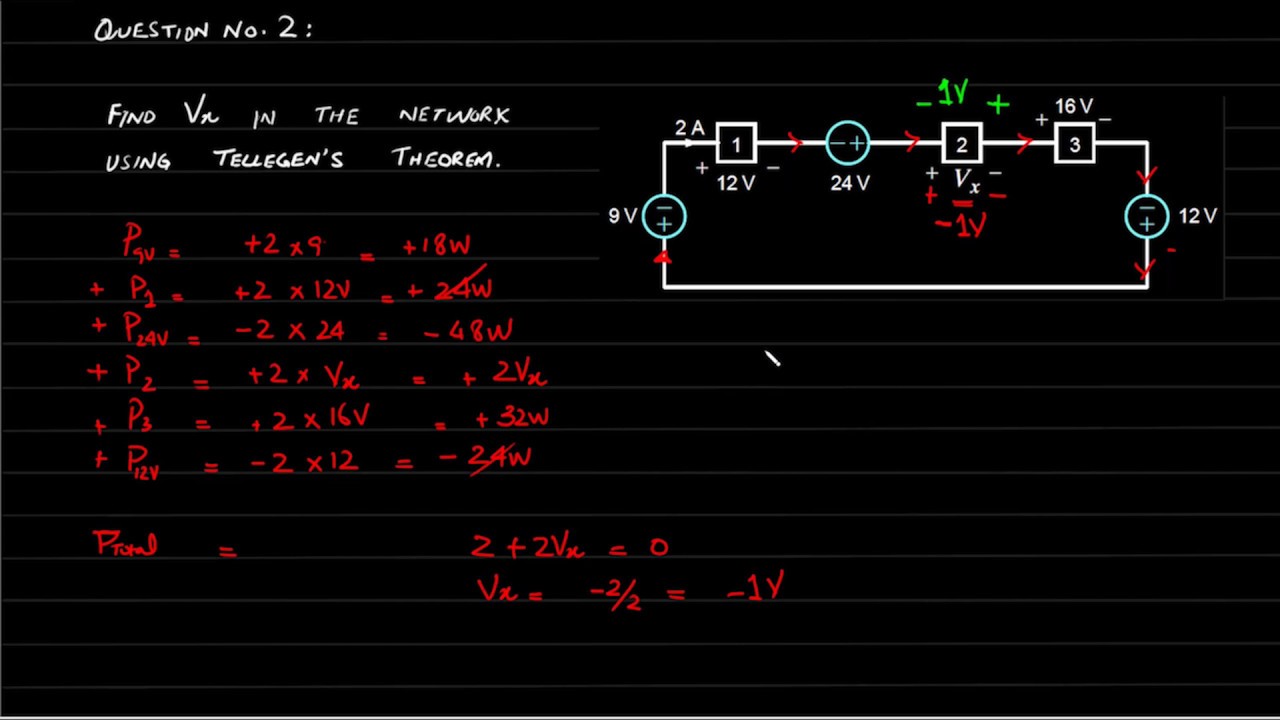 QUESTION NO. 2:
FIND Vx IN THE NETWORK
USING TELLEGEN'S THEOREM.
P9V = +2 x 9 = +18W
+ P1 = +2 x 12V = + 24W
+ P24V = -2 x 24 = - 48W
+ P2 = +2 x Vx = + 2Vx
+ P3 = +2 x 16V = + 32W
+ P12V = -2 x 12 = - 24W
PTotal = 2 + 2Vx = 0
Vx = -2/2 = -1V
- 1V +
2 A
+ 16 V -
1
- +
2
3
+ 12 V -
24 V
+ Vx -
+ = -
-1V
9 V
- +
- +
12 V
-